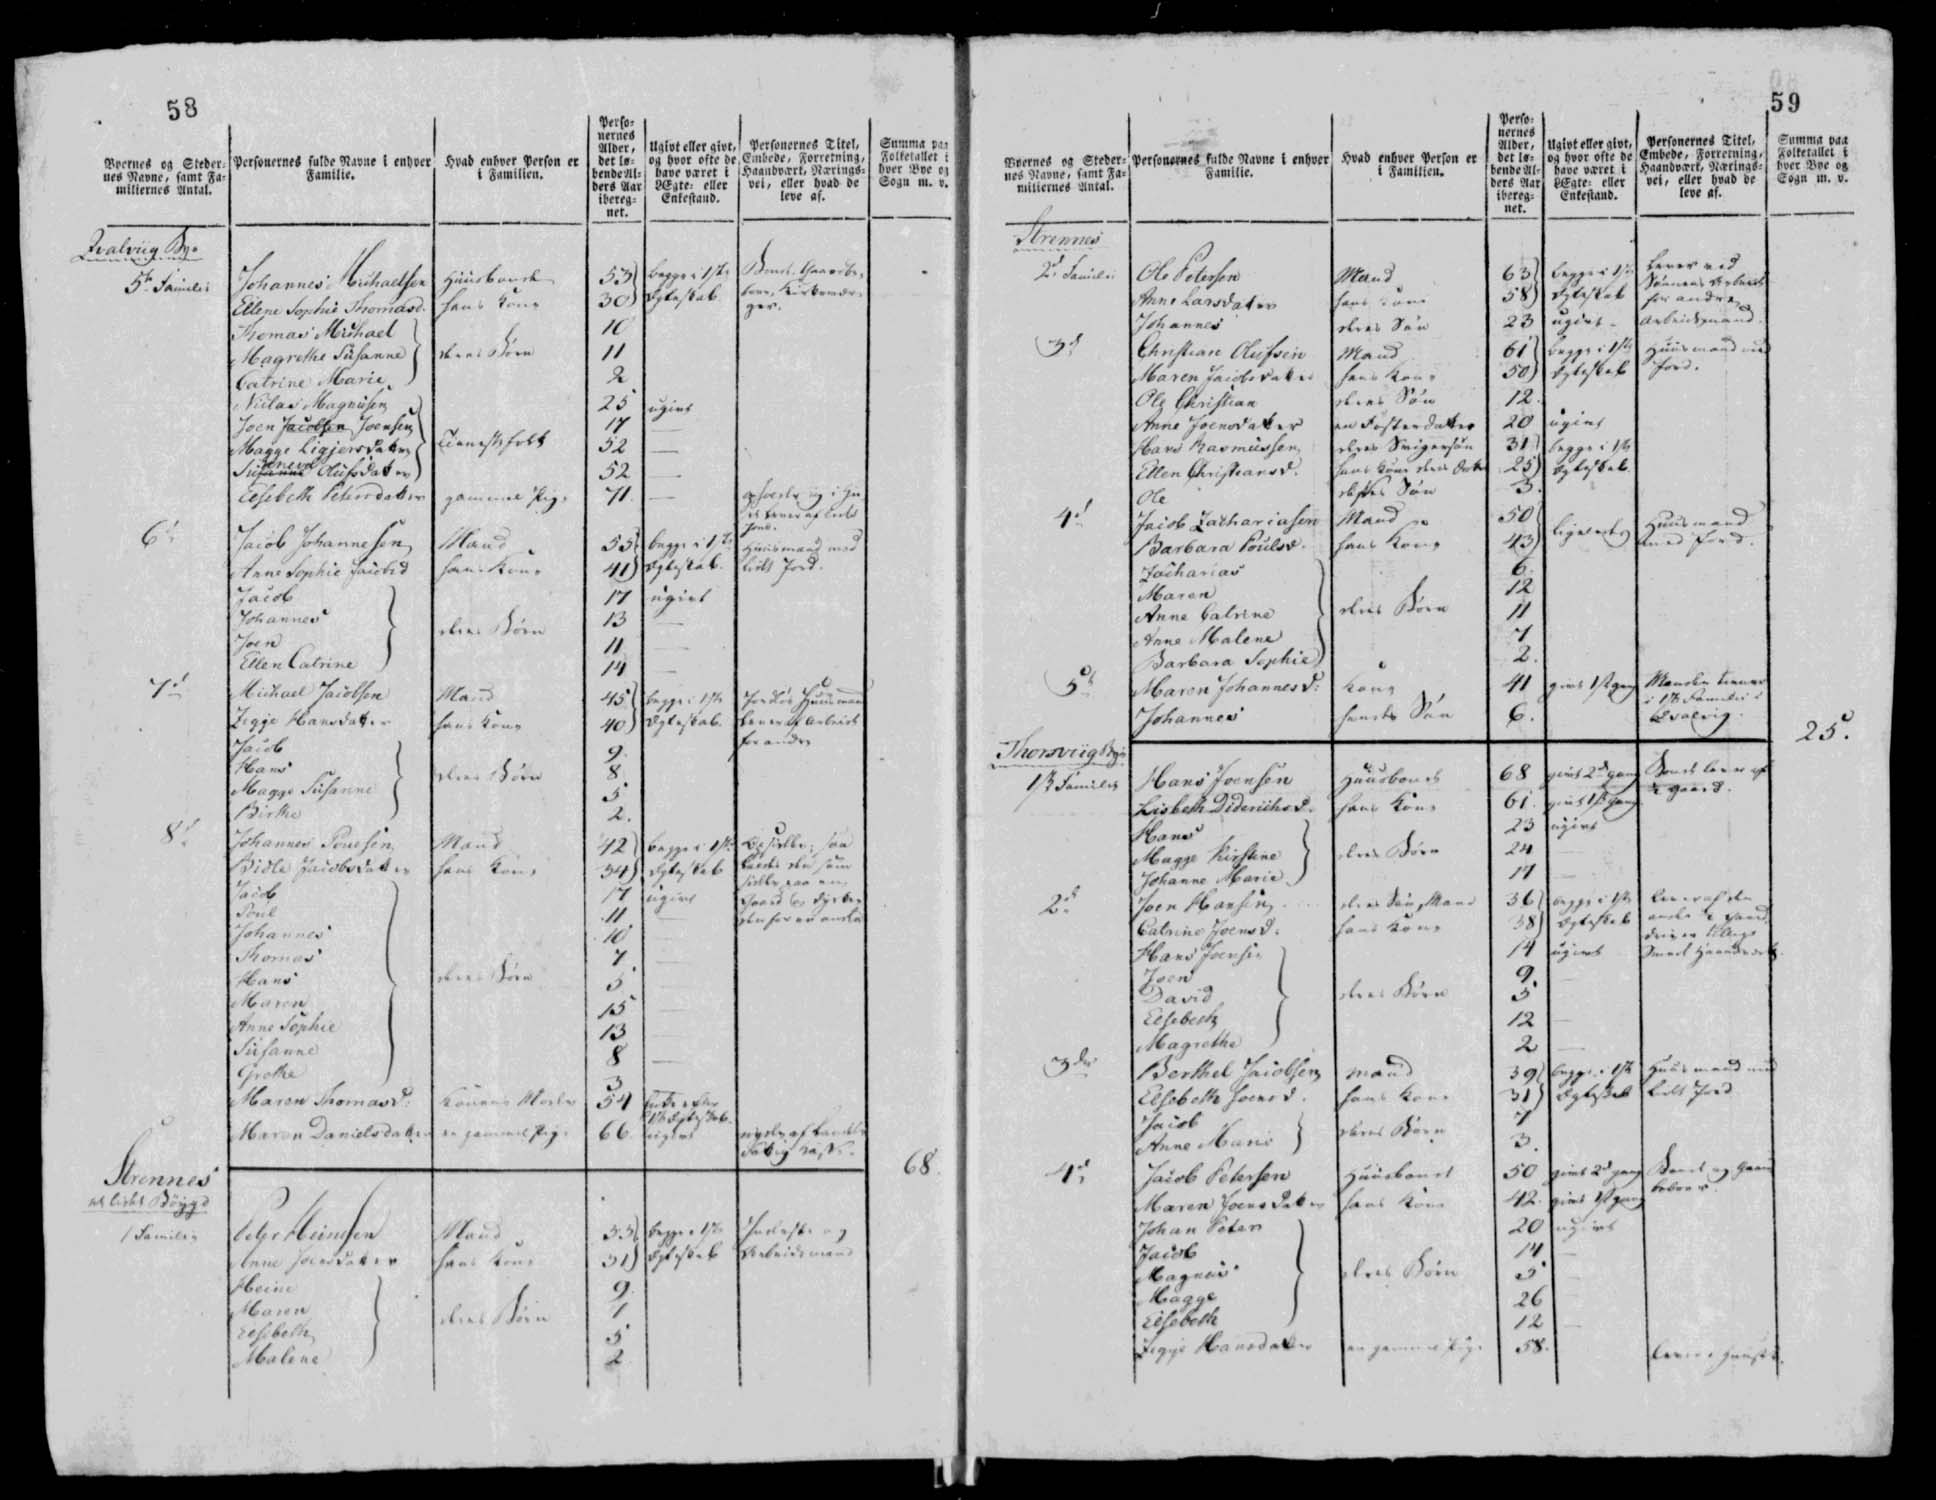 58
Byernes og Steder-
nes Navne, samt Fa-
miliernes Antal.
Personernes fulde Navne i enhver
Familie.
Hvad enhver Person er
i Familien.
Perso-
nernes
Alder,
det lø-
bende Al-
ders Aar
ibereg-
net.
Ugivt eller givt,
og hvor ofte de
have været i
Ægte- eller
Enkestand.
Personernes Titel,
Embede, Forretning,
Haandværk, Nærings-
vei, eller hvad de
leve af.
Summa paa
Folketallet i
hver Bye og
Sogn m. v.
Qvalviig Bye
5te Familie Johannes Michaelsen Huusbonde 53 begge i 1ste
Ellene Sophie Thomasd. hans Kone 30 Ægteskab
Thomas Michael 10
Magrethe Susanne deres Børn 11
Catrine Marie 2
Niclas Magnusen 25 ugivt
Joen Jacobsen Joensen 17 —
Magge Ligjersdatter Tienestefolk 52 —
Susanne Olufsdatter 52 —
Elsebeth Petersdatter gammel Pige 71 —
6te Jacob Johannesen Mand 55 begge i 1ste Huusmand med
Anne Sophie Jacobsd hans Kone 41 Ægteskab. lidt Jord.
Jacob 17 ugivt
Johannes deres Børn 13 —
Joen 11 —
Ellen Catrine 14 —
7de Michael Jacobsen Mand 45 begge i 1ste Jordløs Huusmand
Zigge Hansdatter hans Kone 40 Ægteskab. lever af Arbeide
for andre
Jacob 9.
Hans deres Børn 8
Magge Susanne 5
Birthe 2.
8de Johannes Pouelsen Mand 42 begge i 1ste
Bidle Jacobsdatter hans Kone 34 Ægteskab
Jacob 17 ugivt
Poul 11 —
Johannes 10 —
Thomas 7 —
Hans deres Børn 5 —
Maren 15 —
Anne Sophie 13 —
Susanne 8 —
Grethe 3
Maren Thomasd: Konens Moder 54 Enke efter
1ste Ægteskab.
Maren Danielsdatter en gammel Pige 66 ugivt
68.
Strennes
et lidet Bøygd
1 Familie Peter Heinesen Mand 33 begge i 1ste Inderste og
Anne Joensdatter hans Kone 31 Ægteskab Arbeidsmand
Heine 9.
Maren deres Børn 7
Elsebeth 5
Malene 2
59
Byernes og Steder-
nes Navne, samt Fa-
miliernes Antal.
Personernes fulde Navne i enhver
Familie.
Hvad enhver Person er
i Familien.
Perso-
nernes
Alder,
det lø-
bende Al-
ders Aar
ibereg-
net.
Ugivt eller givt,
og hvor ofte de
have været i
Ægte- eller
Enkestand.
Personernes Titel,
Embede, Forretning,
Haandværk, Nærings-
vei, eller hvad de
leve af.
Summa paa
Folketallet i
hver Bye og
Sogn m. v.
Strennes
2d Familie Ole Petersen Mand 63 begge i 1ste lever ved
Anne Larsdatter hans Kone 58 Ægteskab Sønnens Arbeide
for andre
Johannes deres Søn 23 ugivt Arbeidsmand.
3d Christian Olufsen Mand 61 begge i 1ste Huusmand med
Maren Jacobsdatter hans Kone 50 Ægteskab Jord.
Ole Christian deres Søn 12.
Anne Joensdatter en Fosterdatter 20 ugivt
Hans Rasmussen deres Svigersøn 31 begge i 1ste
Ellen Christiansd. hans Kone deres Datter 25 Ægteskab
Ole disses Søn 3.
4d Jacob Zachariasen Mand 50 ligeledes Huusmand
Barbara Poulsd. hans Kone 43 med Jord.
Zacharias 6.
Maren 12
Anne Catrine deres Børn 11
Anne Malene 7
Barbara Sophie 2.
5t Maren Johannesd: Kone 41 givt 1ste gang Manden tiener
i 1ste Familie i
Johannes hendes Søn 6. Qvalvig.
25.
Thorsviig Bye
1ste Familie Hans Joensen Huusbonde 68 givt 2d gang Bonde lever af
Lisbeth Diderichsd. hans Kone 61. givt 1ste gang ½ Gaard.
Hans 23 ugivt
Magge Kirstine deres Børn 24 —
Johanne Marie 17 —
2d Joen Hansen deres Søn, Mand 36 begge i 1ste lever af den
Catrine Joensd. hans Kone 38 Ægteskab anden ½ Gaard,
Hans Joensen 14 ugivt
Joen 9. —
David deres Børn 5
Elsebeth 12 —
Magrethe 2 —
3die Berthel Jacobsen Mand 39 begge i 1ste Huusmand med
Elsebeth Joensd. hans Kone 31 Ægteskab lidt Jord
Jacob 7
Anne Marie deres Børn 3.
4de Jacob Petersen Huusbonde 50 givt 2d gang Bonde og Gaard
beboer.
Maren Joensdatter hans Kone 42. givt 1ste gang
Johan Peter 20 ugivt
Jacob 14 —
Magnus deres Børn 5
Magge 26
Elsebeth 12 —
Zigge Hansdatter en gammel Pige 58.